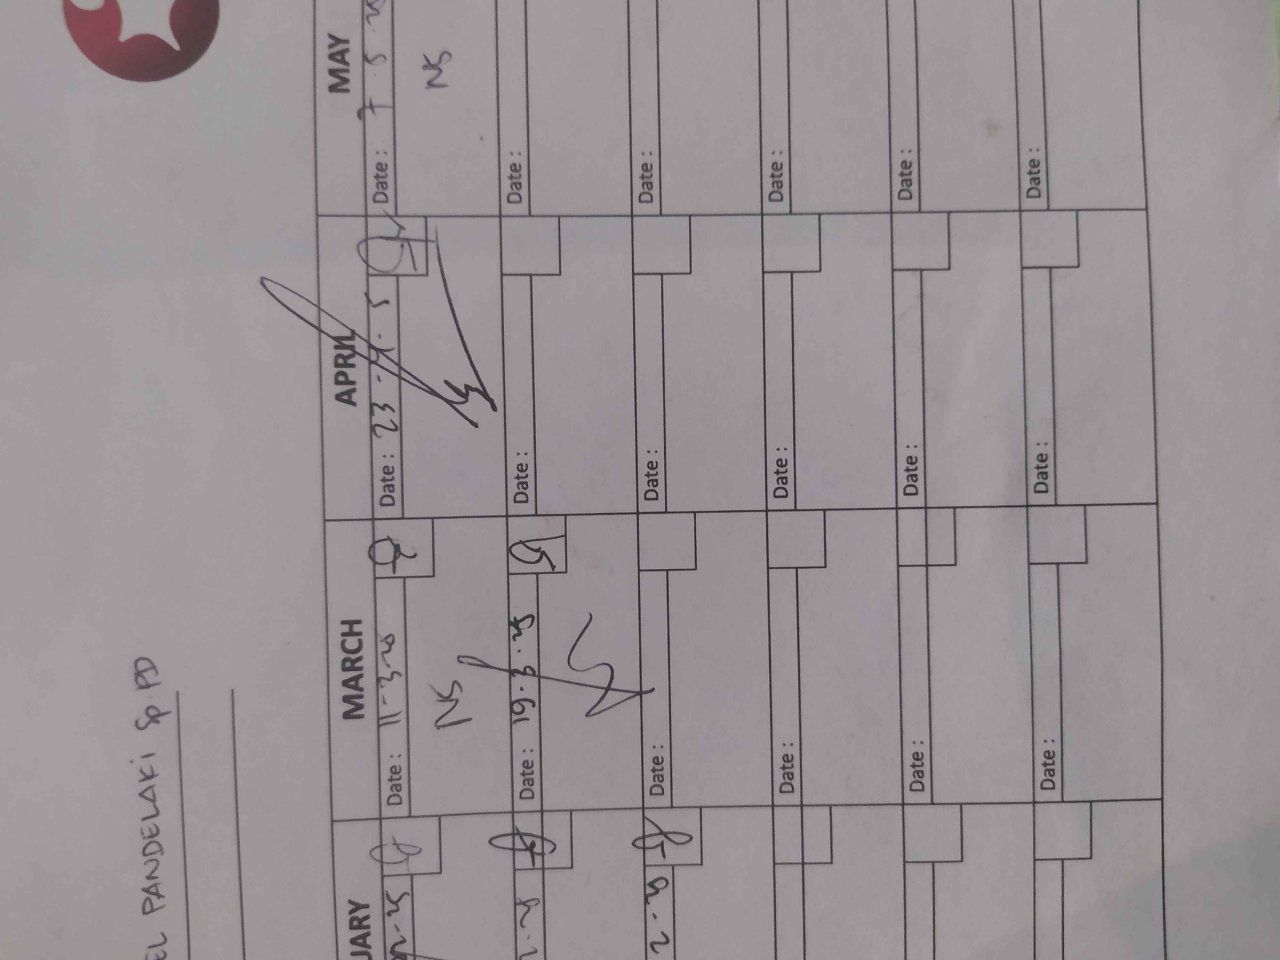 EL PANDELAKI Sp.PD
UARY MARCH APRIL MAY
Date : 11-3-25 Date : 23-4. 5 Date : 7 5
NS NS
Date : 19.3.25 Date : Date :
2.25 Date : Date : Date :
Date : Date : Date :
Date : Date : Date :
Date : Date : Date :